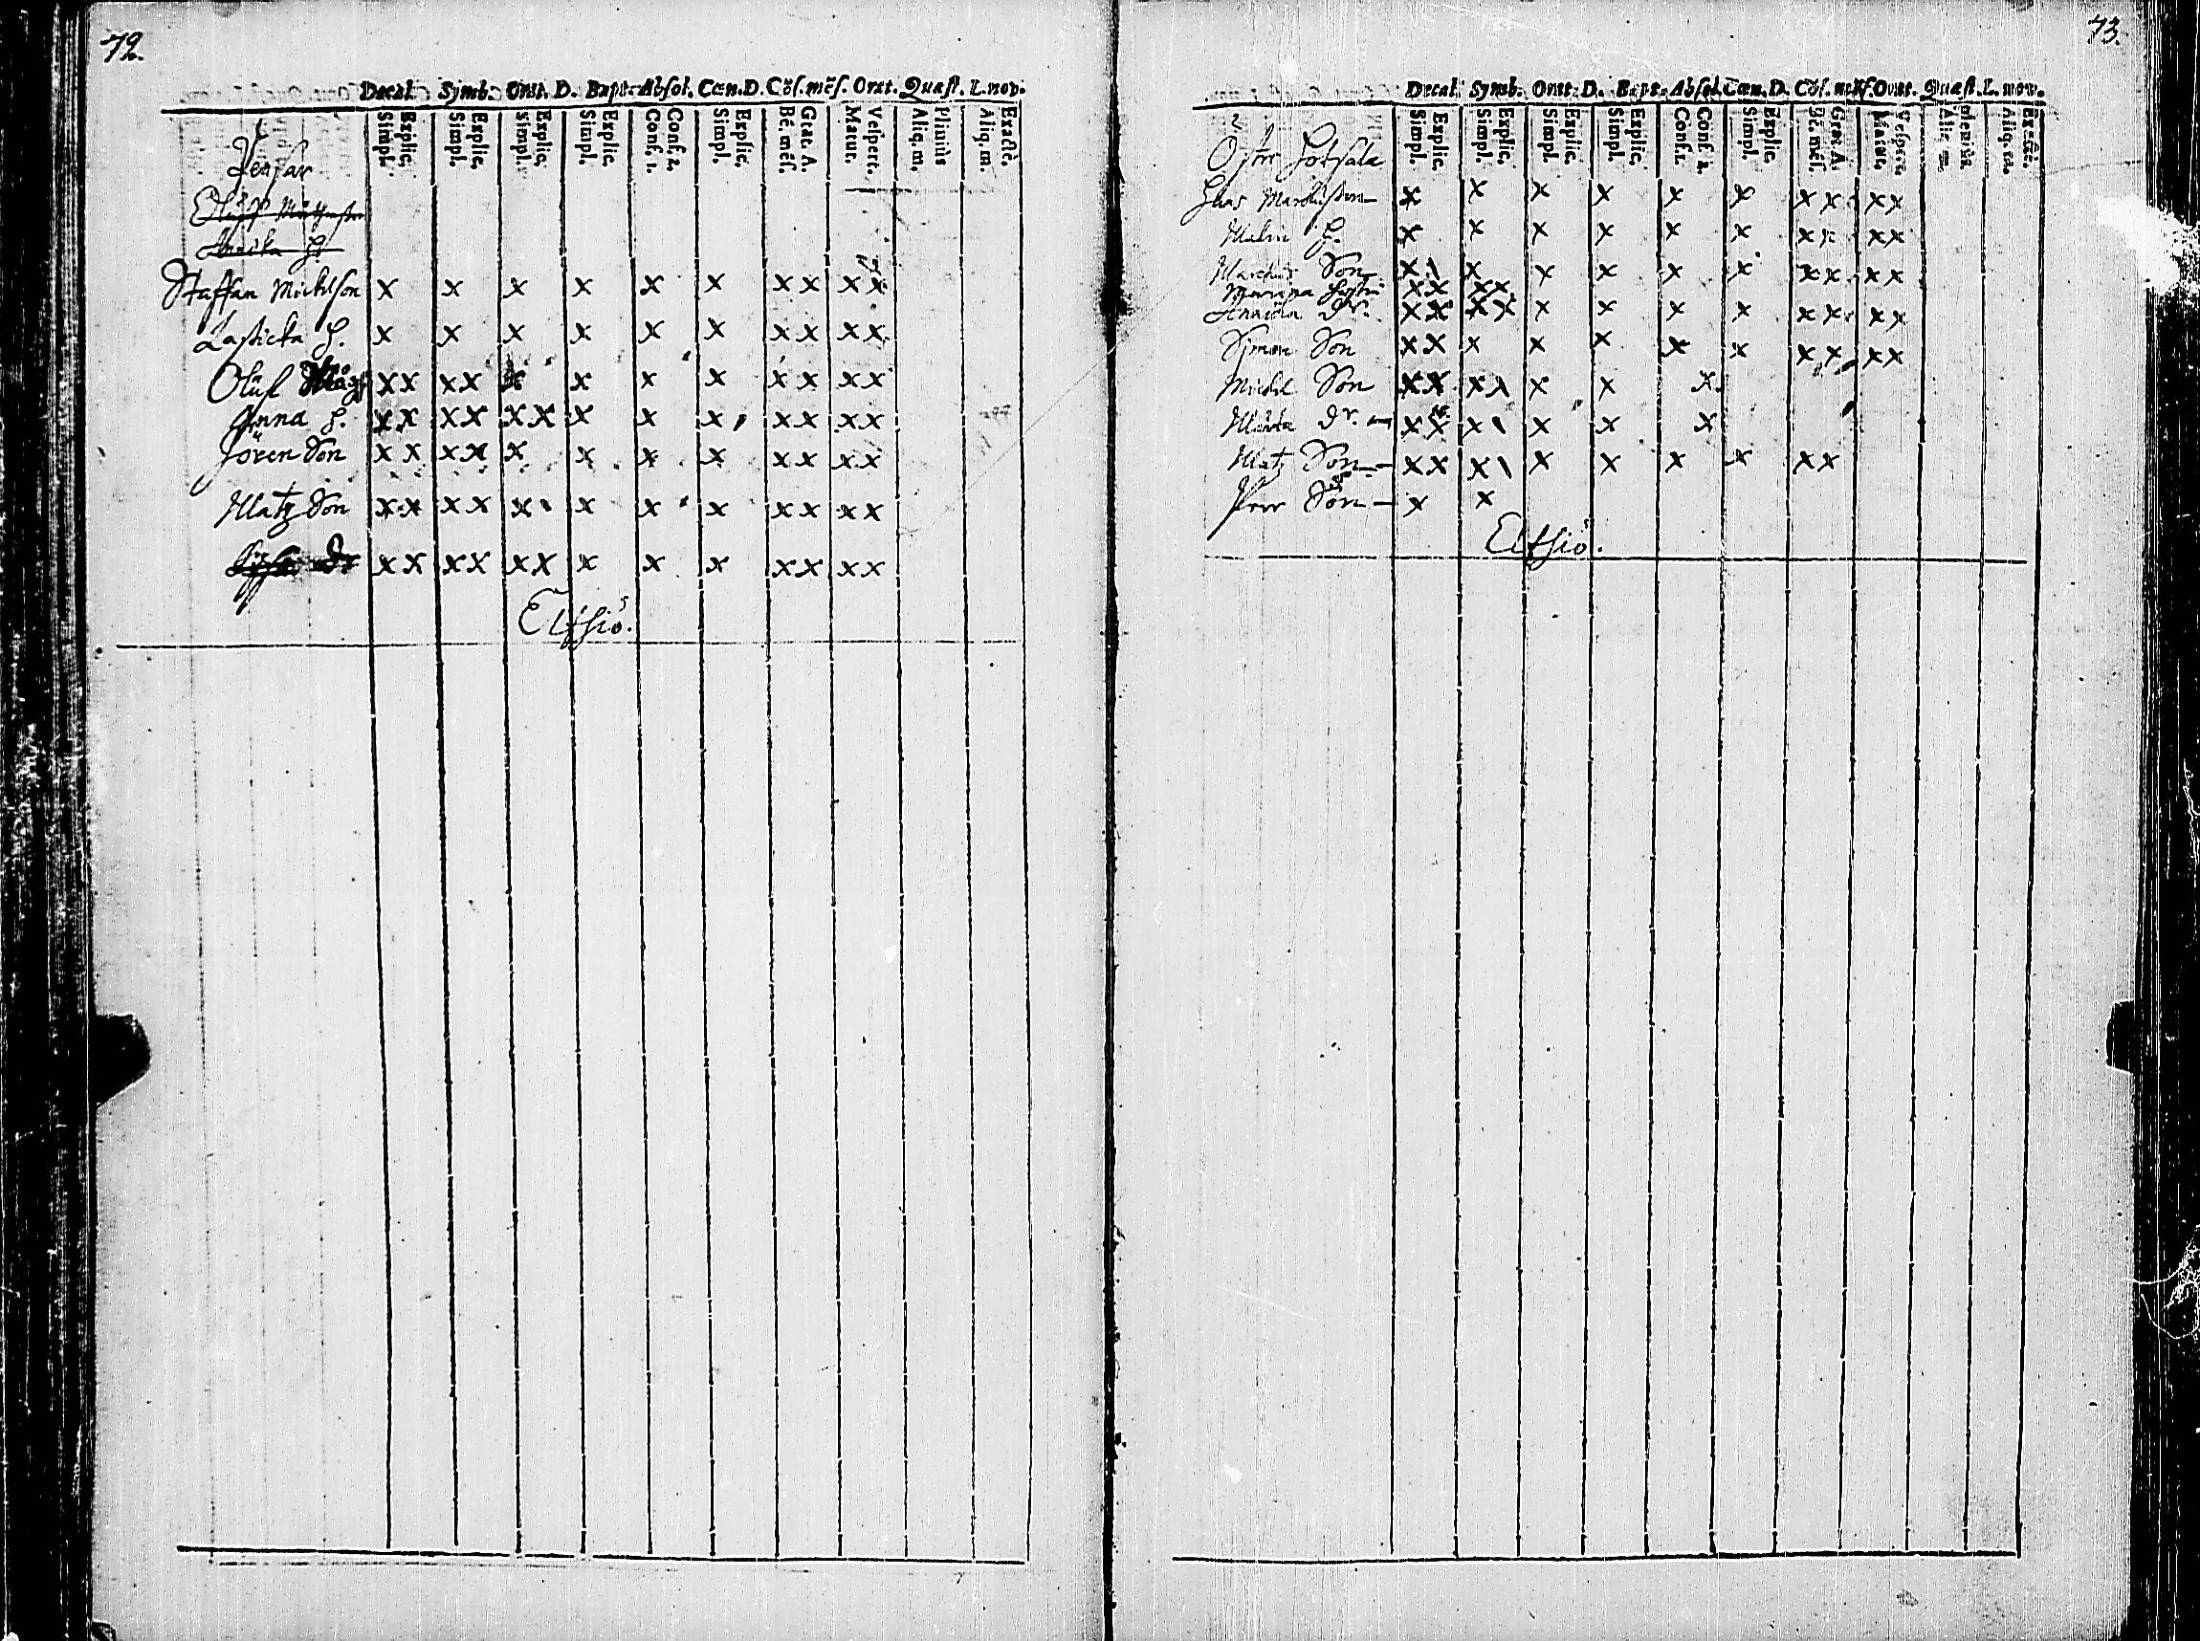 72.
Decal. Symb. Orat. D. Bapt. Absol. Cœn. D. Cōſ. mēſ. Orat. Quæſt. L. nov.
Simpl. Explic. Simpl. Explic. Simpl. Explic. Simpl. Explic. Conf. 1. Conf. 2. Simpl. Explic. Bē. mēſ. Grat. A. Matut. Veſpert. Aliq. m. Plimiūs Aliq. m. Exactè.
Oluff
Annika H
Staffan Michelson x x x x x x x x x x
H. x x x x x x x x x x
Oluf Mågh x x x x x x x x x x x x
Anna H. x x x x x x x x x x x x x
Jören Son x x x x x x x x x x x x
Matz Son x x x x x x x x x x x x
Dr x x x x x x x x x x x x x
Eltsiö.
73.
Decal. Symb. Orat. D. Bapt. Absol. Cœn. D. Cōſ. mēſ. Orat. Quæſt. L. nov.
Simpl. Explic. Simpl. Explic. Simpl. Explic. Simpl. Explic. Conf. 1. Conf. 2. Simpl. Explic. Bē. mēſ. Grat. A. Matut. Veſpert. Aliq. m. Aliq. m. Exactè.
Öster
Clas Marckuson x x x x x x x x x x
Malin H. x x x x x x x x x x
Marckus Son x \ x x x x x x x x x
Marina x x x x
Annicka Dr. x x x x x x x x x x x x
Simon Son x x x x x x x x x x x
Michel Son x x x \ x x x
Märta Dr. x x x \ x x x
Matz Son x x x \ x x x x x x
Perr Son x x
Eltsiö.